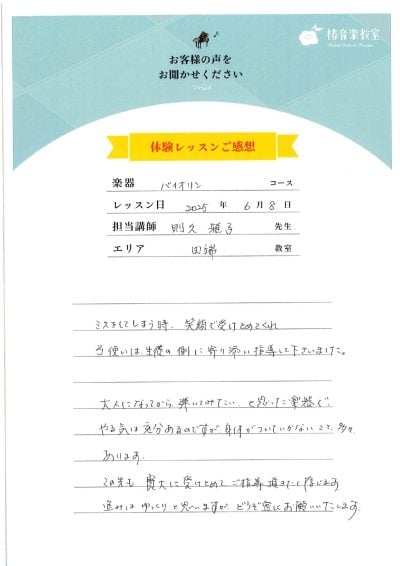 椿音楽教室
お客様の声を
お聞かせください
Voice
体験レッスンご感想
楽器 バイオリン コース
レッスン日 2025 年 6 月 8 日
担当講師 則久 雅子 先生
エリア 田端 教室
ミスをしてしまう時、笑顔で受けとめてくれ
弓使いは生徒の側に寄り添い指導して下さいました。
大人になってから弾いてみたい、と思った楽器で、
やる気は充分あるのですが身体がついていかないことも多々
あります。
この先も寛大に受けとめてご指導頂きたく存じます。
進みはゆっくりと思いますが、どうぞ宜しくお願いいたします。